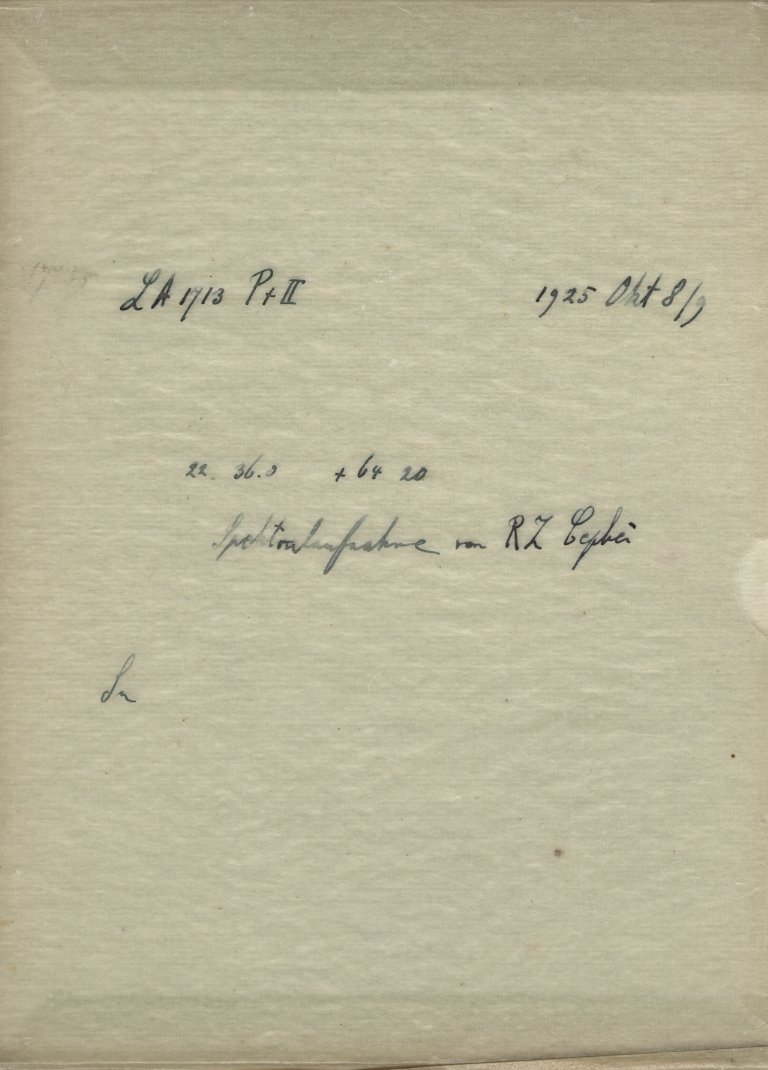 LA 1713 Pt II 1925 Okt 8/9
22. 36.0 + 64 20
Spektralaufnahme von RZ Cephei